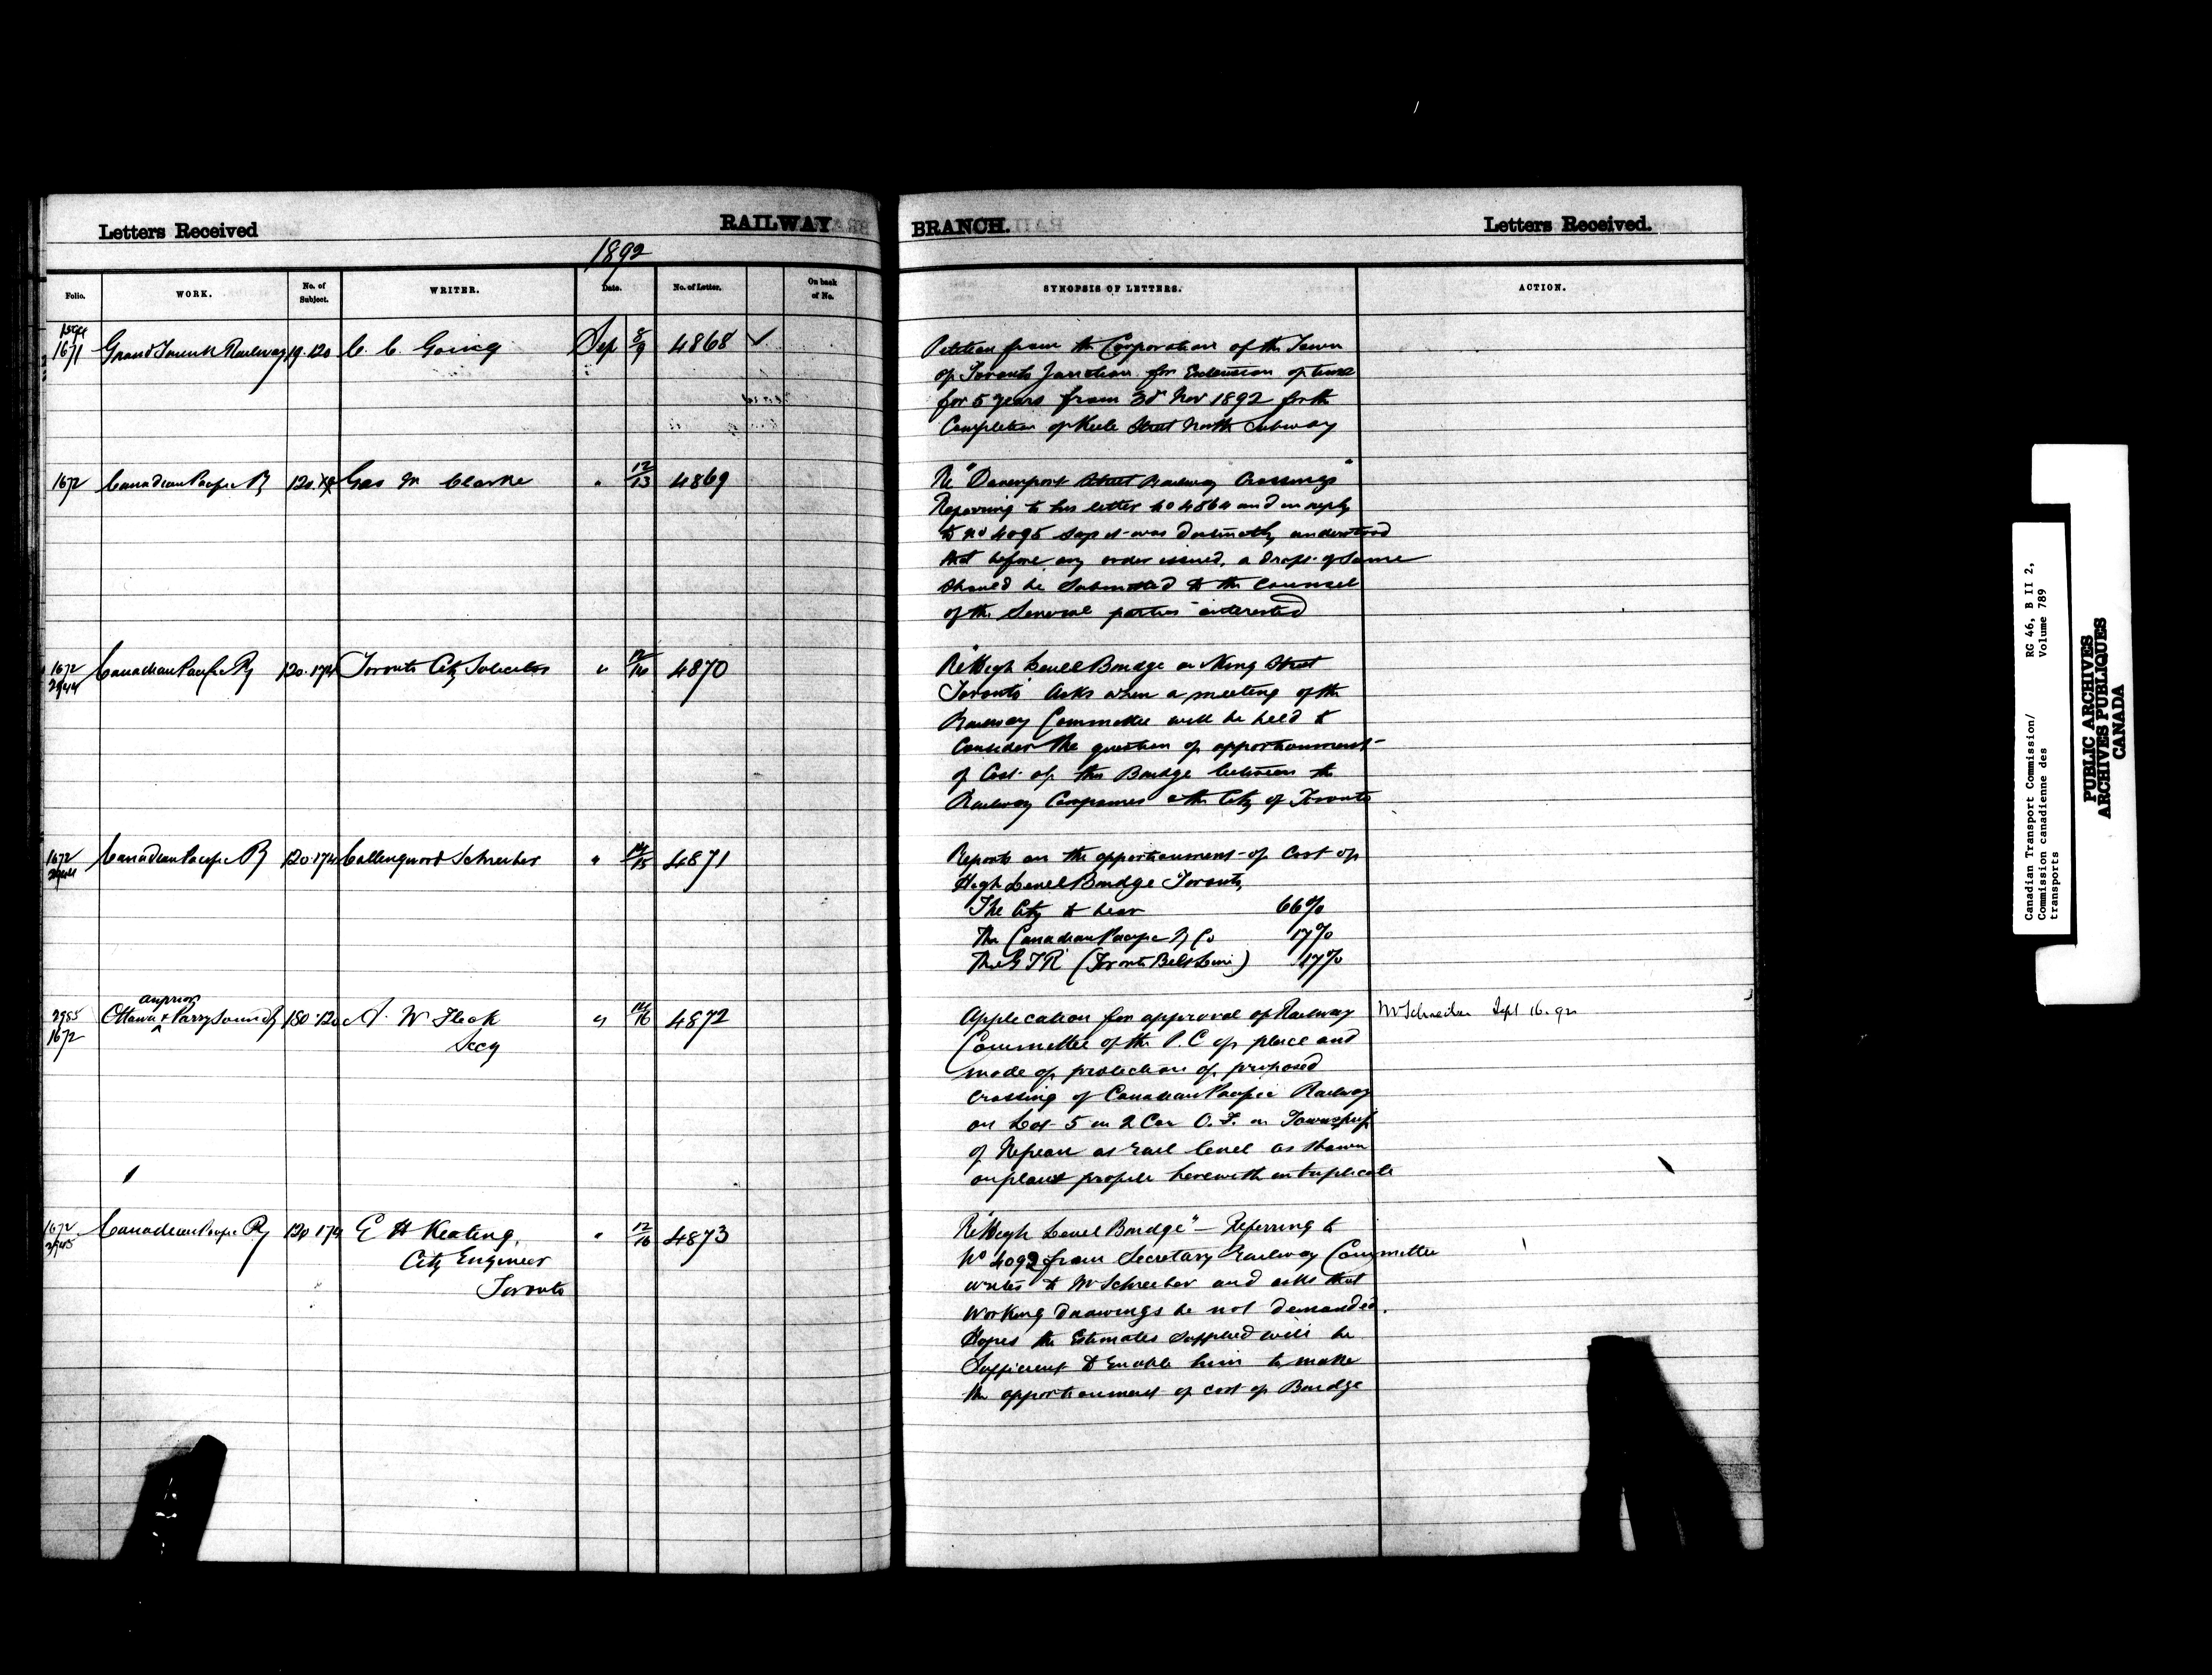 Letters Received
RAILWAY
BRANCH.
Letters Received.
1892
Folio.
WORK.
No. of Subject.
WRITER.
Date.
No. of Letter.
On back of No.
SYNOPSIS OF LETTERS.
ACTION.
1671 Grand Trunk Railway 19.120 C. C. Going Sep 8/9 4868 ✓
Petition from the Corporation of the Town
of Toronto Junction for Extension of time
for 5 years from 3d Nov 1892 for the
Completion of Keele Street North Subway
1672 Canadian Pacific Ry 120. Geo M Clarke " 12/13 4869
Re "Davenport Street Railway Crossings"
Referring to his letter no 4864 and in reply
to no 4095 says it was distinctly understood
that before any order issued, a draft of same
should be submitted to the Counsel
of the several parties interested
1672 2944 Canadian Pacific Ry 120.174 Toronto City Solicitor " 4870
Re "High Level Bridge on King Street
Toronto" Asks when a meeting of the
Railway Committee will be held to
Consider the question of apportionment
of Cost of this Bridge between the
Railway Companies & the City of Toronto
1672 2944 Canadian Pacific Ry 120.174 Collingwood Schreiber " 14/15 4871
Reports on the apportionment of Cost of
High Level Bridge Toronto,
The City to bear 66%
The Canadian Pacific Ry Co 17%
The G T R (Toronto Belt Line) 17%
2985 1672 Ottawa Arnprior & Parry Sound Ry 180.120 A. W Fleck " 14/16 4872
Secy
Application for approval of Railway
Mr Schreiber Sept 16.92
Committee of the P.C of place and
mode of protection of proposed
crossing of Canadian Pacific Railway
on Lot 5 in 2 Con O.F. in Township
of Nepean at rail level as shown
on plan & profile herewith in triplicate
1672 2945 Canadian Pacific Ry 120 174 E H Keating, " 12/16 4873
City Engineer
Toronto
Re "High Level Bridge" — Referring to
No 4092 from Secretary Railway Committee
writes to Mr Schreiber and asks that
working drawings be not demanded.
Hopes the Estimates supplied will be
Sufficient to Enable him to make
the apportionment of cost of Bridge
Canadian Transport Commission/
Commission canadienne des
transports
RG 46, B II 2,
Volume 789
PUBLIC ARCHIVES
ARCHIVES PUBLIQUES
CANADA